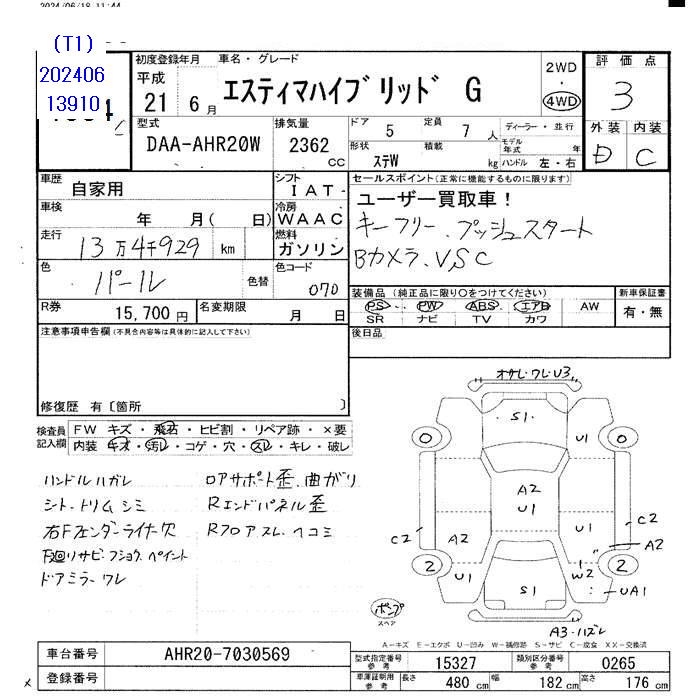 2024/06/18 11:44
(T1)
202406
13910
初度登録年月
平成
21 6月
車名・グレード
エスティマハイブリッド G
2WD
・
4WD
評価点
3
外装 内装
D C
型式
DAA-AHR20W
排気量
2362
CC
ドア 5 定員 7 人
形状 ステW 積載 kg
ディーラー・並行
モデル年式 年
ハンドル 左・右
車歴 自家用
シフト IAT-
車検 年 月( 日)
冷房 WAAC
走行 13万4千929 km
燃料 ガソリン
色 パール 色替
色コード 070
R券 15,700円
名変期限 月 日
セールスポイント(正常に機能するものに限ります)
ユーザー買取車!
キーフリー、プッシュスタート
Bカメラ、VSC
装備品(純正品に限り○をつけてください)
新車保証書
PS PW ABS エアB AW
有・無
SR ナビ TV カワ
後日品
注意事項申告欄(不具合内容等は具体的に記入して下さい)
修復歴 有〔箇所 〕
検査員記入欄
FW キズ・飛石・ヒビ割・リペア跡・×要
内装 キズ・汚レ・コゲ・穴・スレ・キレ・破レ
ハンドルハガレ
シート、トリム シミ
右Fフェンダーライナー欠
下廻リサビ・フショク、ペイント
ドアミラーワレ
ロアサポート歪、曲がり
Rエンドパネル歪
Rフロアスレ、ヘコミ
オサレ・ワレ・U3
S1
U1
A2
U1
U1
C2
A2
C2
A2
U1
W2
2
2
0
0
S1
UA1
A3・ハズレ
ポンプ
スペア
A-キズ E-エクボ U-凹み W-補修跡 S-サビ C-腐食 XX-交換済
車台番号 AHR20-7030569
登録番号
型式指定番号 参考 15327
類別区分番号 参考 0265
車庫証明用 参考 長さ 480 cm 幅 182 cm 高さ 176 cm
x